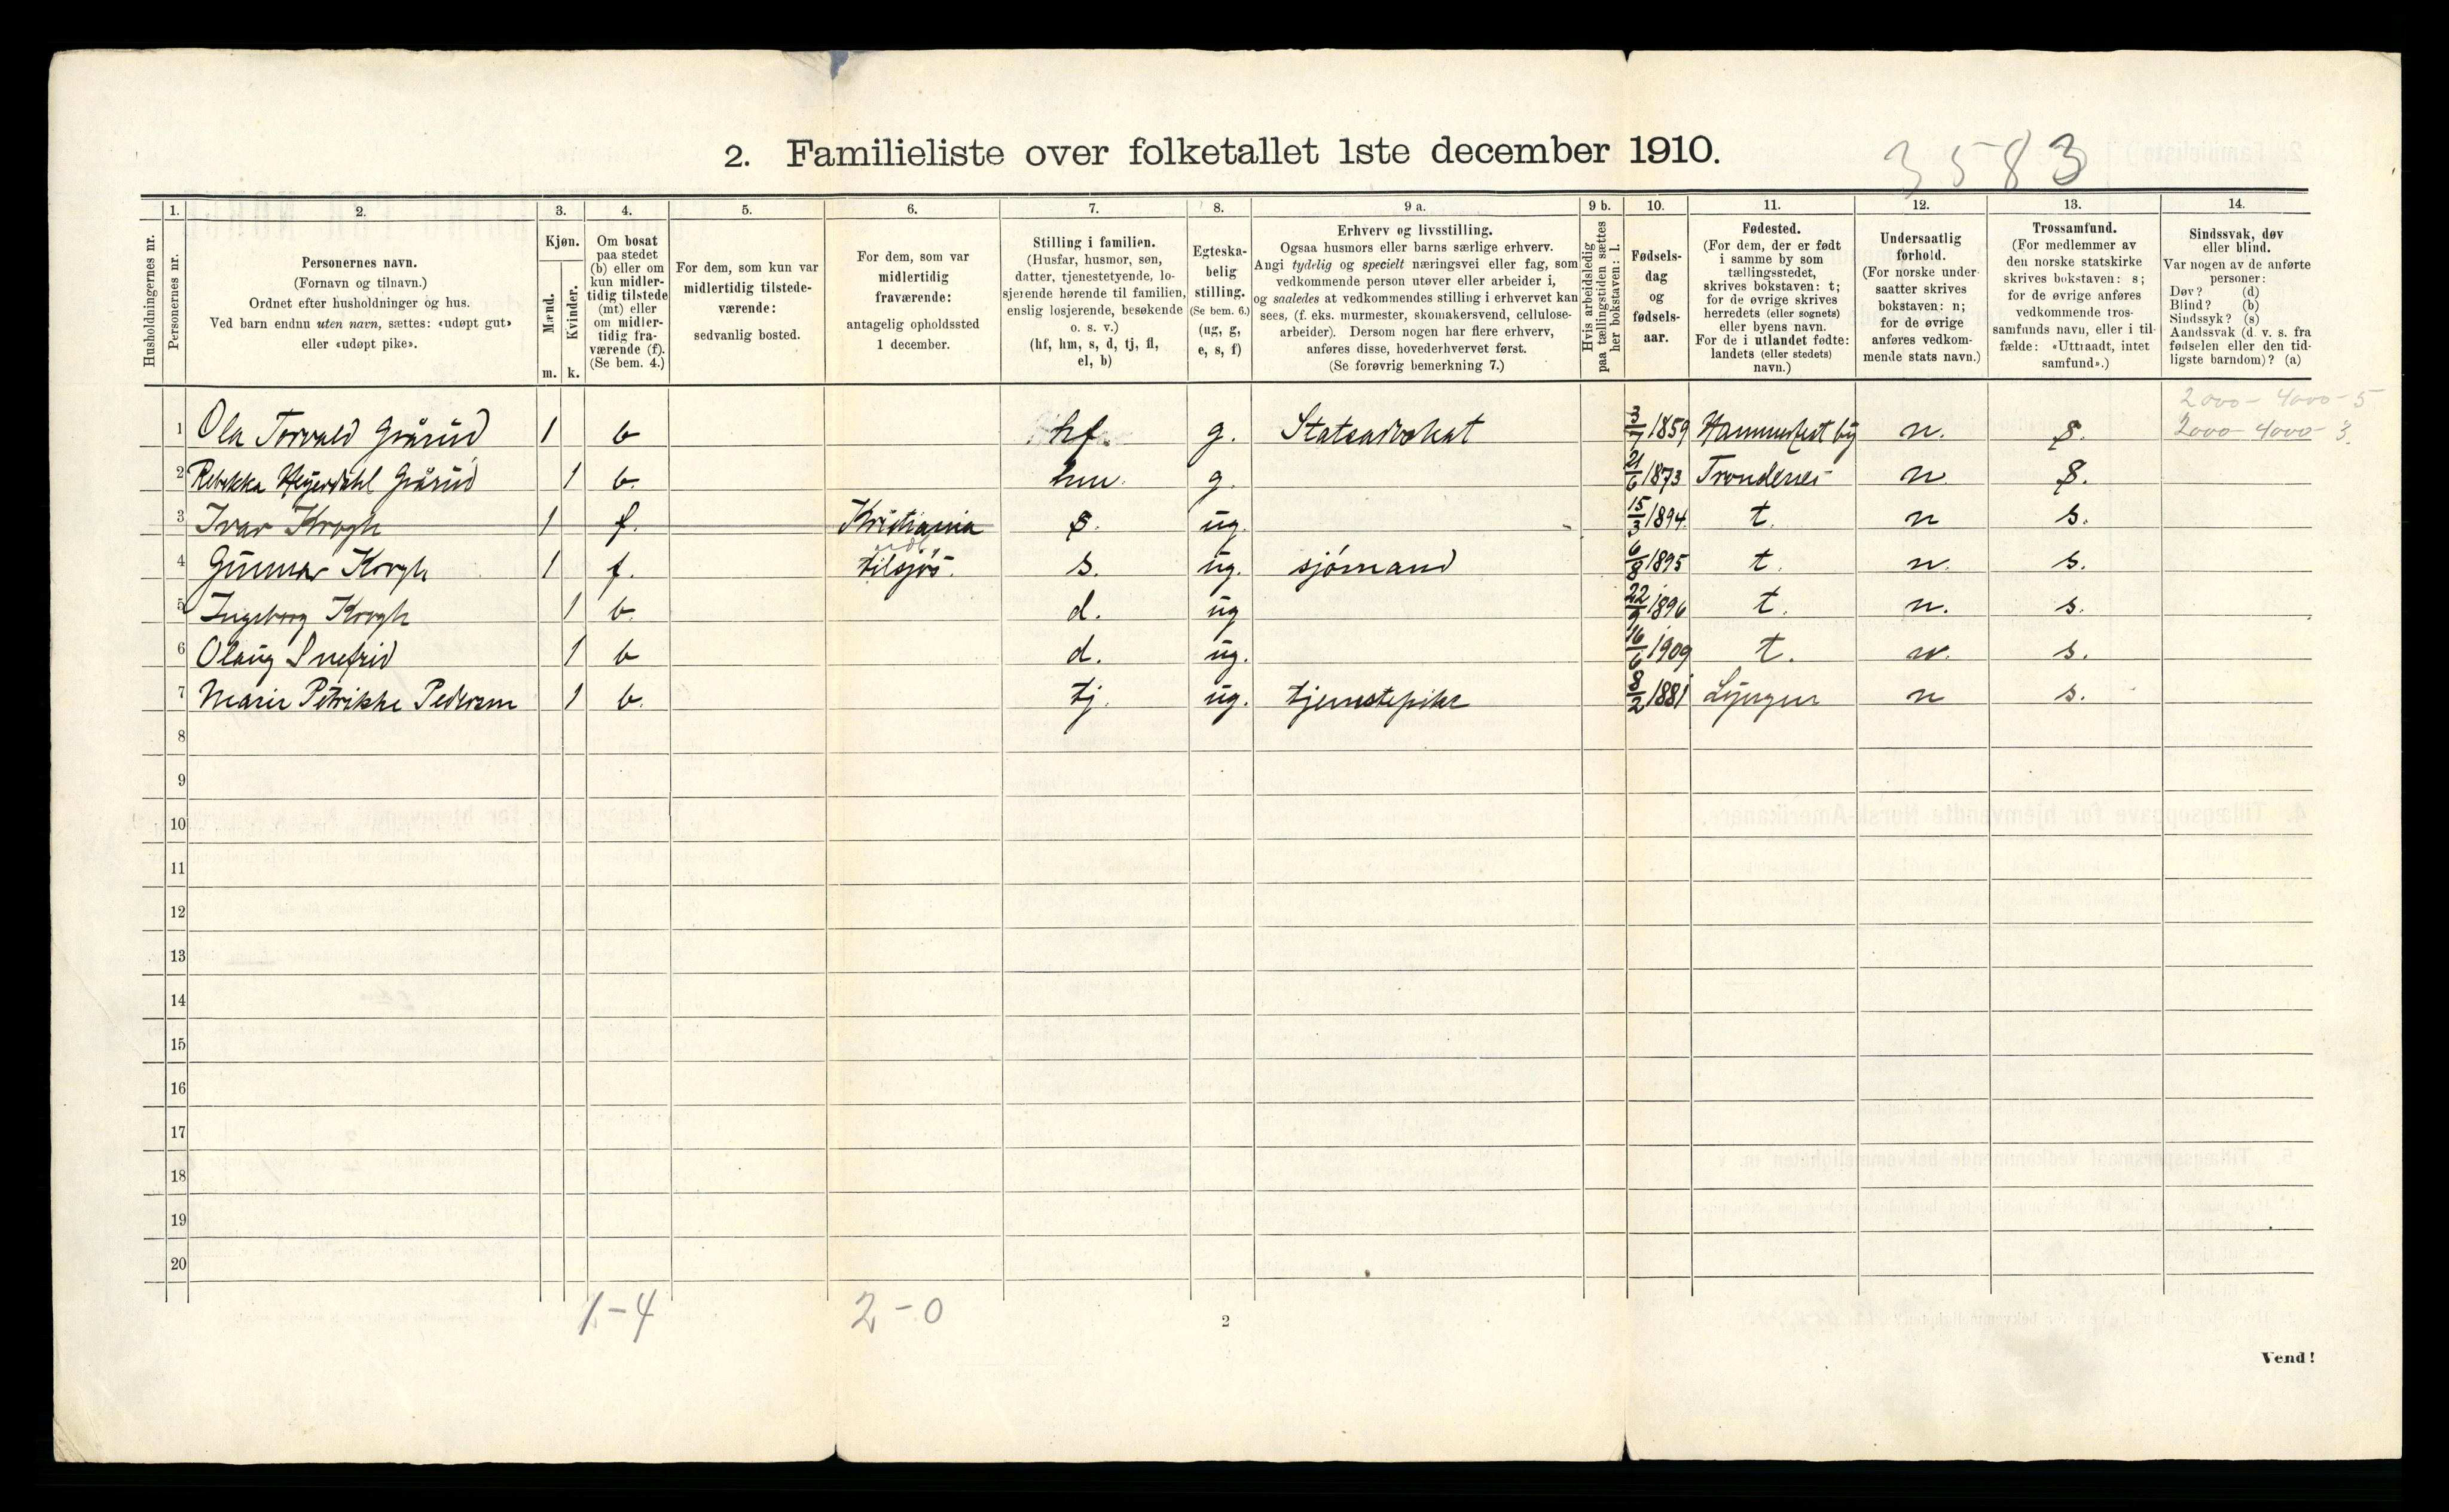 2. Familieliste over folketallet 1ste december 1910.
3583
Husholdningernes nr.
1. Personernes nr.
2. Personernes navn.
(Fornavn og tilnavn.)
Ordnet efter husholdninger og hus.
Ved barn endnu uten navn, sættes: «udøpt gut»
eller «udøpt pike».
3. Kjøn.
Mænd. m.
Kvinder. k.
4. Om bosat
paa stedet
(b) eller om
kun midler-
tidig tilstede
(mt) eller
om midler-
tidig fra-
værende (f).
(Se bem. 4.)
5. For dem, som kun var
midlertidig tilstede-
værende:
sedvanlig bosted.
6. For dem, som var
midlertidig
fraværende:
antagelig opholdssted
1 december.
7. Stilling i familien.
(Husfar, husmor, søn,
datter, tjenestetyende, lo-
sjerende hørende til familien,
enslig losjerende, besøkende
o. s. v.)
(hf, hm, s, d, tj, fl,
el, b)
8. Egteska-
belig
stilling.
(Se bem. 6.)
(ug, g,
e, s, f)
9 a. Erhverv og livsstilling.
Ogsaa husmors eller barns særlige erhverv.
Angi tydelig og specielt næringsvei eller fag, som
vedkommende person utøver eller arbeider i,
og saaledes at vedkommendes stilling i erhvervet kan
sees, (f. eks. murmester, skomakersvend, cellulose-
arbeider). Dersom nogen har flere erhverv,
anføres disse, hovederhvervet først.
(Se forøvrig bemerkning 7.)
9 b. Hvis arbeidsledig
paa tællingstiden sættes
her bokstaven: l.
10. Fødsels-
dag
og
fødsels-
aar.
11. Fødested.
(For dem, der er født
i samme by som
tællingsstedet,
skrives bokstaven: t;
for de øvrige skrives
herredets (eller sognets)
eller byens navn.
For de i utlandet fødte:
landets (eller stedets)
navn.)
12. Undersaatlig
forhold.
(For norske under-
saatter skrives
bokstaven: n;
for de øvrige
anføres vedkom-
mende stats navn.)
13. Trossamfund.
(For medlemmer av
den norske statskirke
skrives bokstaven: s;
for de øvrige anføres
vedkommende tros-
samfunds navn, eller i til-
fælde: «Uttraadt, intet
samfund».)
14. Sindssvak, døv
eller blind.
Var nogen av de anførte
personer:
Døv? (d)
Blind? (b)
Sindssyk? (s)
Aandssvak (d. v. s. fra
fødselen eller den tid-
ligste barndom)? (a)
2000 - 4000 - 5
1 Ola Torvald Grårud 1 b hf. g. Statsadvokat 3/7 1859 Hammerfest by n. s. 2000 - 4000 - 3.
2 Rebekka Heyerdahl Grårud 1 b. hm. g. 21/6 1873 Trondenes n s.
3 Ivar Krogh 1 f. Kristiania s. ug. 15/3 1894 t. n s.
4 Gunnar Krogh 1 f. tilsjøs. s. ug. sjømand 6/8 1895 t. n. s.
5 Ingeborg Krogh 1 b. d. ug 22/9 1896 t. n. s.
6 Olaug Snefrid 1 b d. ug. 16/6 1909 t. n. s.
7 Marie Petrikke Pedersen 1 b. tj. ug. tjenestepike 8/2 1881 Lyngen n s.
8
9
10
11
12
13
14
15
16
17
18
19
20
1-4 2-0
2
Vend!